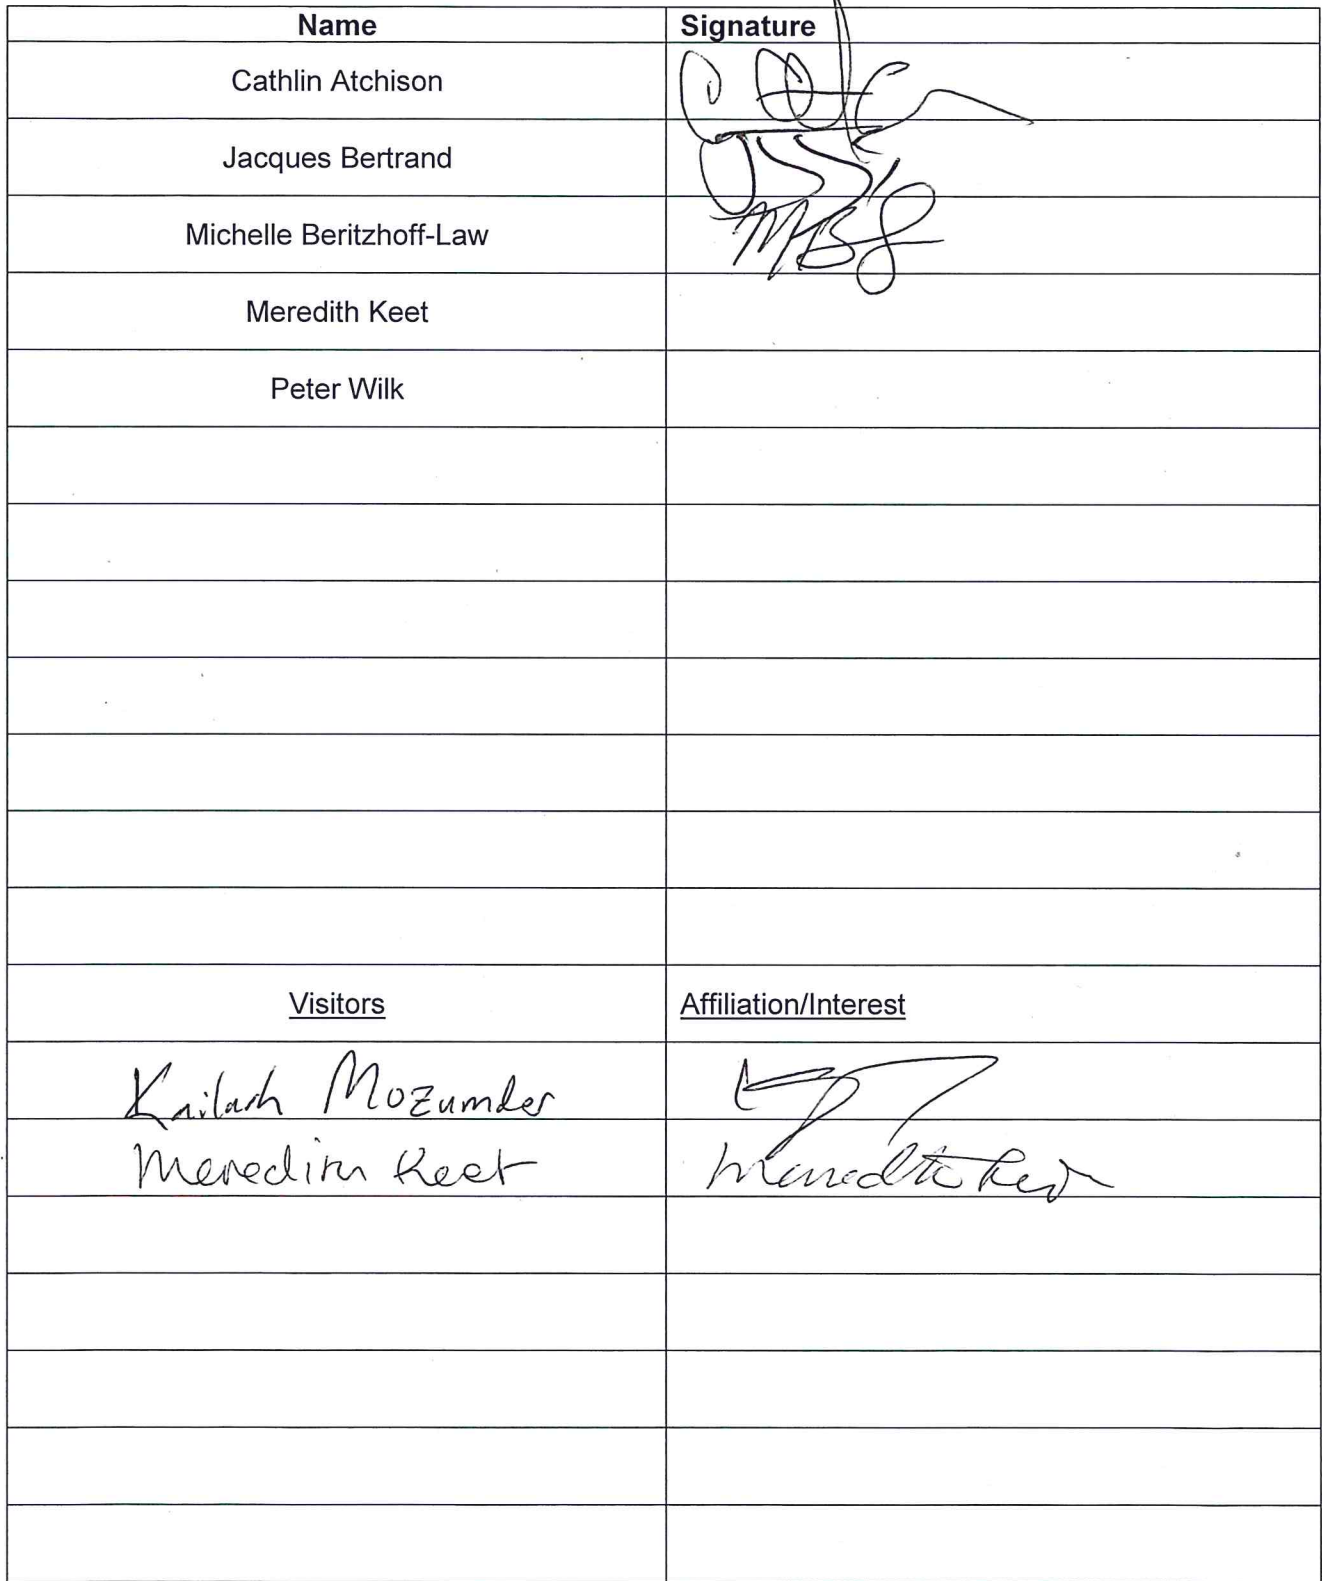 Name Signature
Cathlin Atchison
Jacques Bertrand
Michelle Beritzhoff-Law MBL
Meredith Keet
Peter Wilk
Visitors Affiliation/Interest
Kailash Mozumder
Meredith Keet Meredith Keet